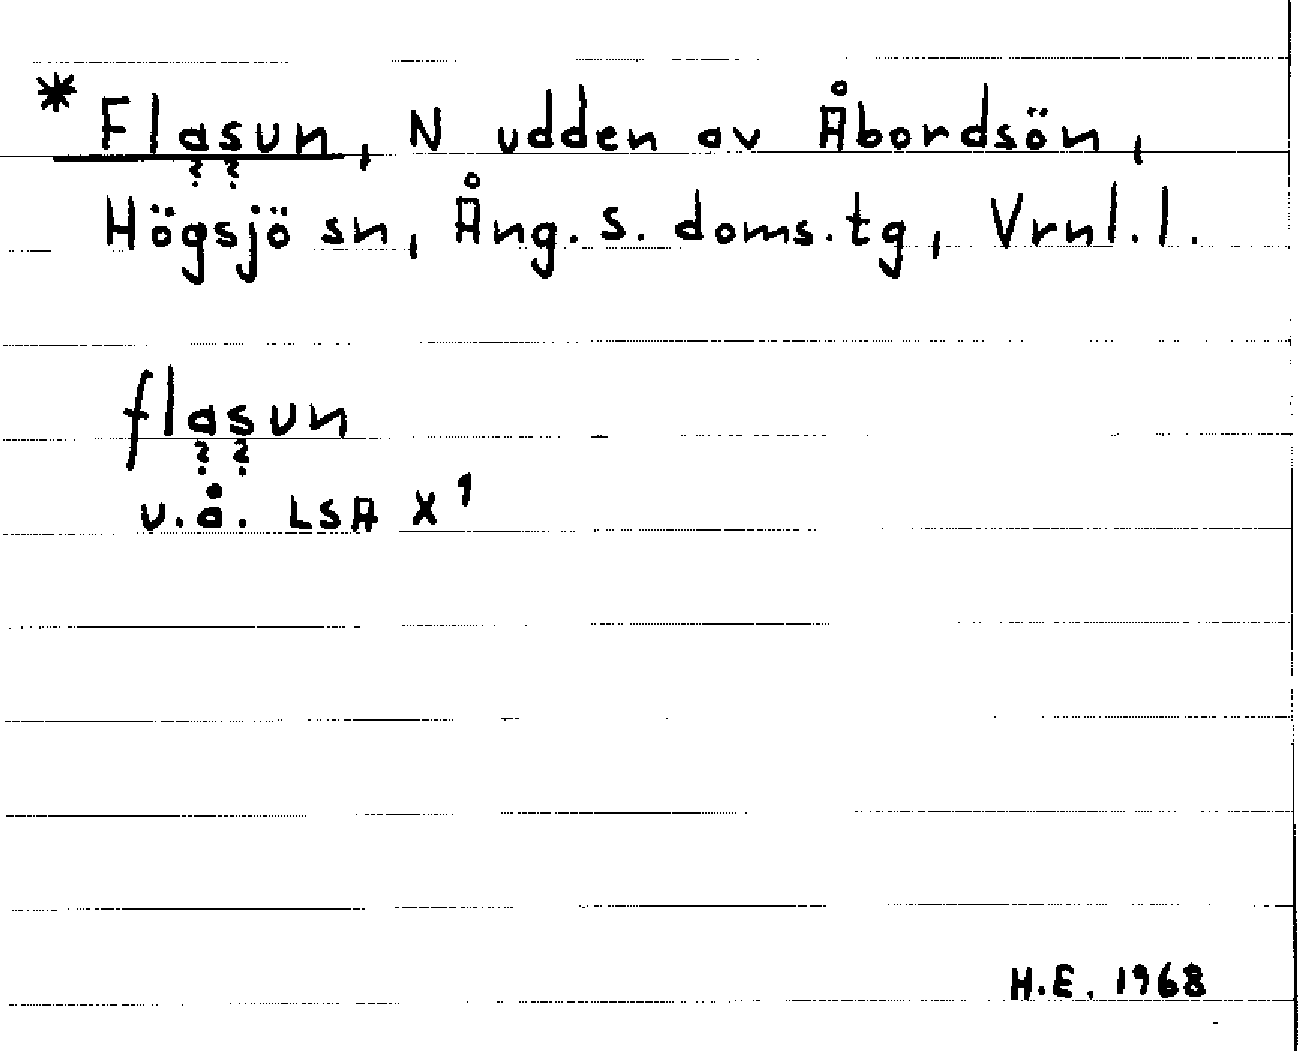 * Flasun, N udden av Åbordsön,
? ?
Högsjö sn, Ång. s. doms.tg, Vrnl.l.
flasun
? ?
u.å. LSA X¹
H.E. 1968